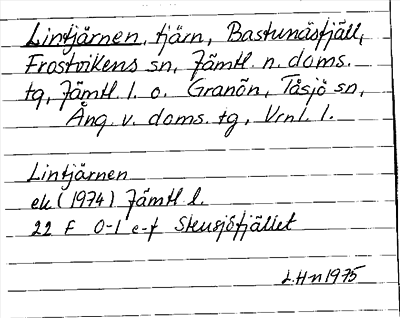 Lintjärnen, tjärn, Bastunäsfjäll,
Frostvikens sn, Jämtl. n. doms.
tg, Jämtl. l. o. Granön, Tåsjö sn,
Ång. v. doms. tg, Vrnl. l.
Lintjärnen
ek (1974) Jämtl l.
22 F 0-1 e-f Stensjöfjället
L.Hn 1975